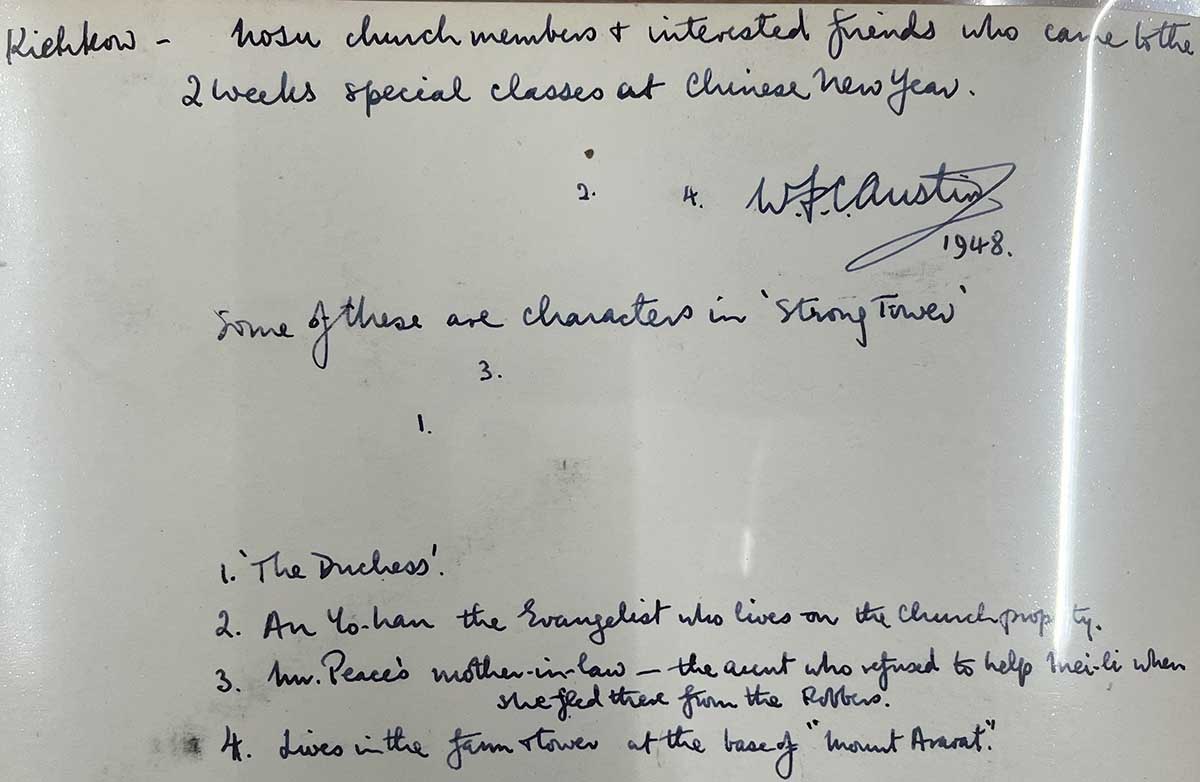 Kiehkow - Nosu church members & interested friends who came to the
2 weeks special classes at Chinese New Year.
2. 4. W.F.C. Austin
1948.
Some of these are characters in 'Strong Tower'
3.
1.
1. 'The Duchess'.
2. An Yo-han the Evangelist who lives on the Church property.
3. Mr. Peace's mother-in-law - the aunt who refused to help Mei-li when
she fled there from the Robbers.
4. Lives in the farm & tower at the base of "Mount Ararat."